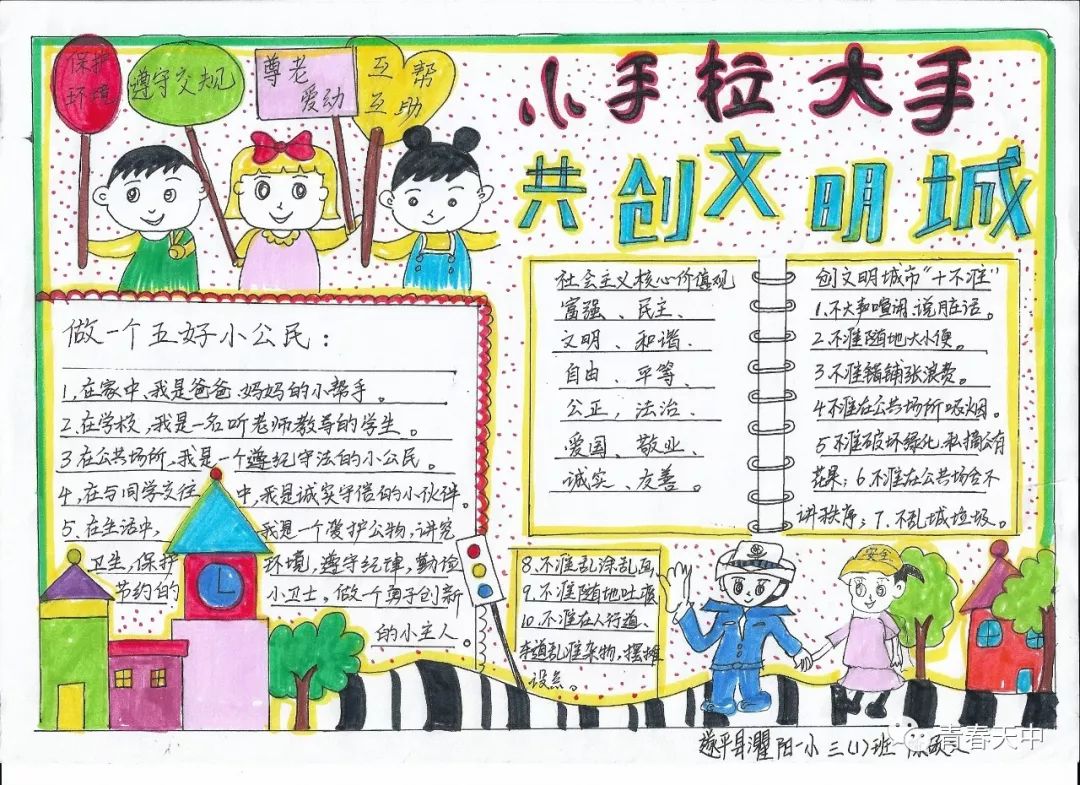 保护
环境
遵守交规
尊老
爱动
互帮
互助
小手拉大手
共创文明城
做一个五好小公民：
1,在家中,我是爸爸、妈妈的小帮手。
2.在学校,我是一名听老师教导的学生。
3.在公共场所,我是一个遵纪守法的小公民。
4,在与同学交往中,我是诚实守信的小伙伴。
5.在生活中,我是一个爱护公物,讲究
卫生,保护环境,遵守纪律,勤俭
节约的小卫士。做一个勇于创新
的小主人
社会主义核心价值观
富强、民主、
文明、和谐、
自由、平等、
公正，法治、
爱国、敬业、
诚实、友善。
创文明城市“十不准”
1.不大声喧闹、说脏话。
2.不准随地大小便。
3.不准铺张浪费。
4不准在公共场所吸烟。
5不准破坏绿化,私摘公有
花果；6.不准在公共场合不
讲秩序；7.不乱城垃圾。
8.不准乱涂乱画,
9.不准随地吐痰
10.不准在人行道、
车道乱堆杂物,摆摊
设点。
安全
遂平县瞿阳一小 三(1)班
青春天中